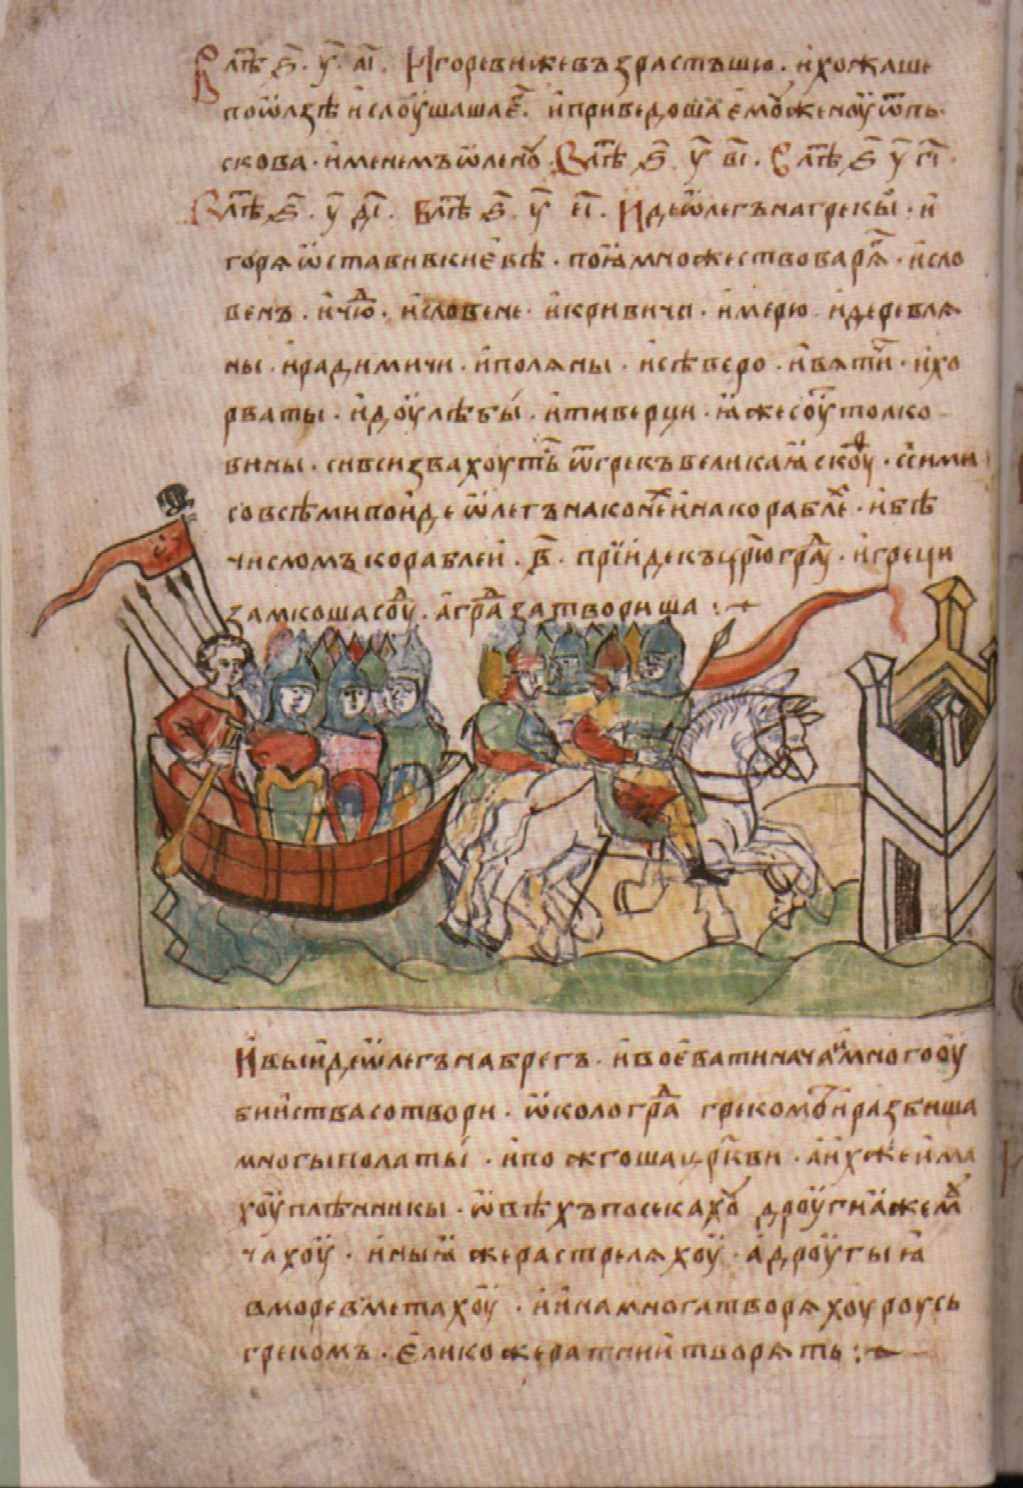 В лѣⷮ҇ ҂ѕ҃. у҃. а҃і. Игоревижевъзрастъшю. и҆хожаше
поѡ҆лзѣ и҆слоу́шашаеⷢ҇. и҆приведошаꙗ҆ е҆моу҆женоу҆ ѿпь
скова. и҆менемъѡ҆леноу. В лѣⷮ҇ ҂ѕ҃ у҃ в҃і. В лѣⷮ҇ ҂ѕ҃ у҃ г҃і.
В лѣⷮ҇ ҂ѕ҃. у҃ д҃і. В лѣⷮ҇ ҂ѕ҃ у҃ е҃і. И҆деѡ҆легънагрекы. и҆
горяѡ҆ставивкие҆вѣ. поꙗ҆множествовараⷢ҇. и҆сло
венъ. и҆чюⷣ. и҆словене. и҆кривичи. и҆мерю. и҆деревля
ны. и҆радимичи. и҆поляны. и҆сѣверо. и҆вятиⷱ҇и. и҆хо
рваты. и҆доу҆лѣбы. и҆тиверци. ꙗ҆жесоу҆ⷮтолко
вины. сивсизвахоутⷭ҇ь ѿгрекъвеликаꙗ҆скоуⷴ. ссими
совсѣмипоидеѡ҆легънаконеⷯи҆накораблеⷯ. и҆бѣ
числомъкораблеи. ҂в҃. прїи҆декъцр҃юграⷣу. и҆греци
замкошасоуⷣ. а҆граⷣзатвориша :~
И҆выи҆деѡ҆легънабрегъ. и҆вое҆ватиначаⷩ҇ и҆многооу҆
биисствасотвори. ѡ҆колограⷣа грекомⷨ҇ и҆разбиша
многыполаты. и҆пожгошацр҃кви. а҆и҆хжеи҆ма
хоу҆плѣнникы. ѡ҆вѣхъпосекахоу дроу҆гиꙗ҆жемоуⷱ҇
чахоу҆. и҆ныꙗ҆жерастреляхоу҆. а҆дроу҆гыꙗ҆
вморевметахоу҆. и҆и҆намногатворяхоуроусь
грекомъ. е҆ликожератнии҆творять :~